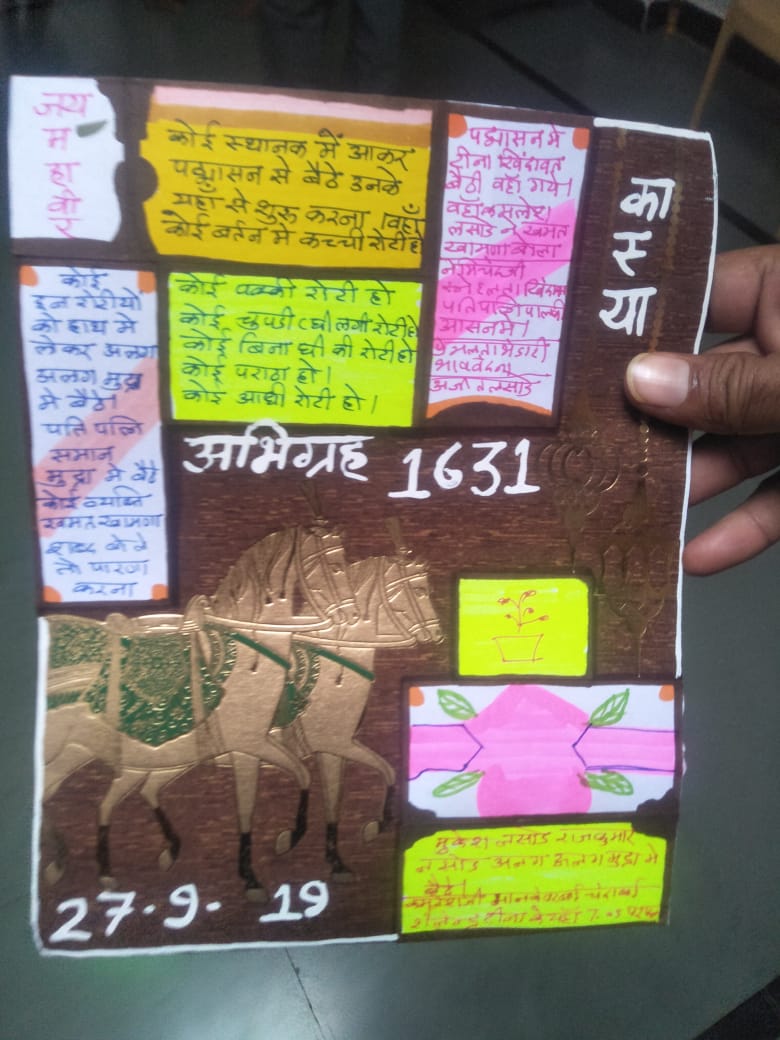 जय
म
हा
वी
र
कोई स्थानक में आकर
पद्मासन से बैठे उनके
यहाँ से शुरू करना । वहाँ
कोई बर्तन मे कच्ची रोटी हो
पद्मासन मे
टीना खिंदावत
बैठी वहाँ गये।
वहाँ कमलेश
लसोड ने खमत
खामणा बोला
नेमिचंदजी
पति पत्नि पालखी
आसनमे।
का
स्
या
कोई
इन रोटीयों
को हाथ मे
लेकर अलग
अलग मुद्रा
मे बैठे।
पति पत्नि
समान
मुद्रा मे बैठे
कोई व्यक्ति
खमत खामणा
शब्द बोले
तो पारणा
करना
कोई पक्की रोटी हो
कोई चुपड़ी (घी लगी रोटी हो
कोई बिना घी की रोटी हो
कोई पराठा हो।
कोई आधी रोटी हो।
अभिग्रह 1631
मुकेश लसोड राजकुमार
लसोड अलग अलग मुद्रा मे
बैठे।
27.9. 19